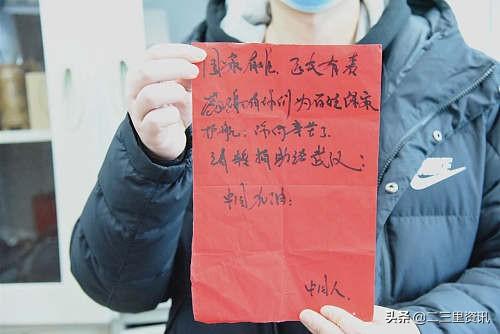 国家有难. 匹夫有责
感谢有你们为百姓保家
护航. 你们辛苦了
捐助给武汉:
中国加油:
中国人.
NIKE
头条 @二三里资讯